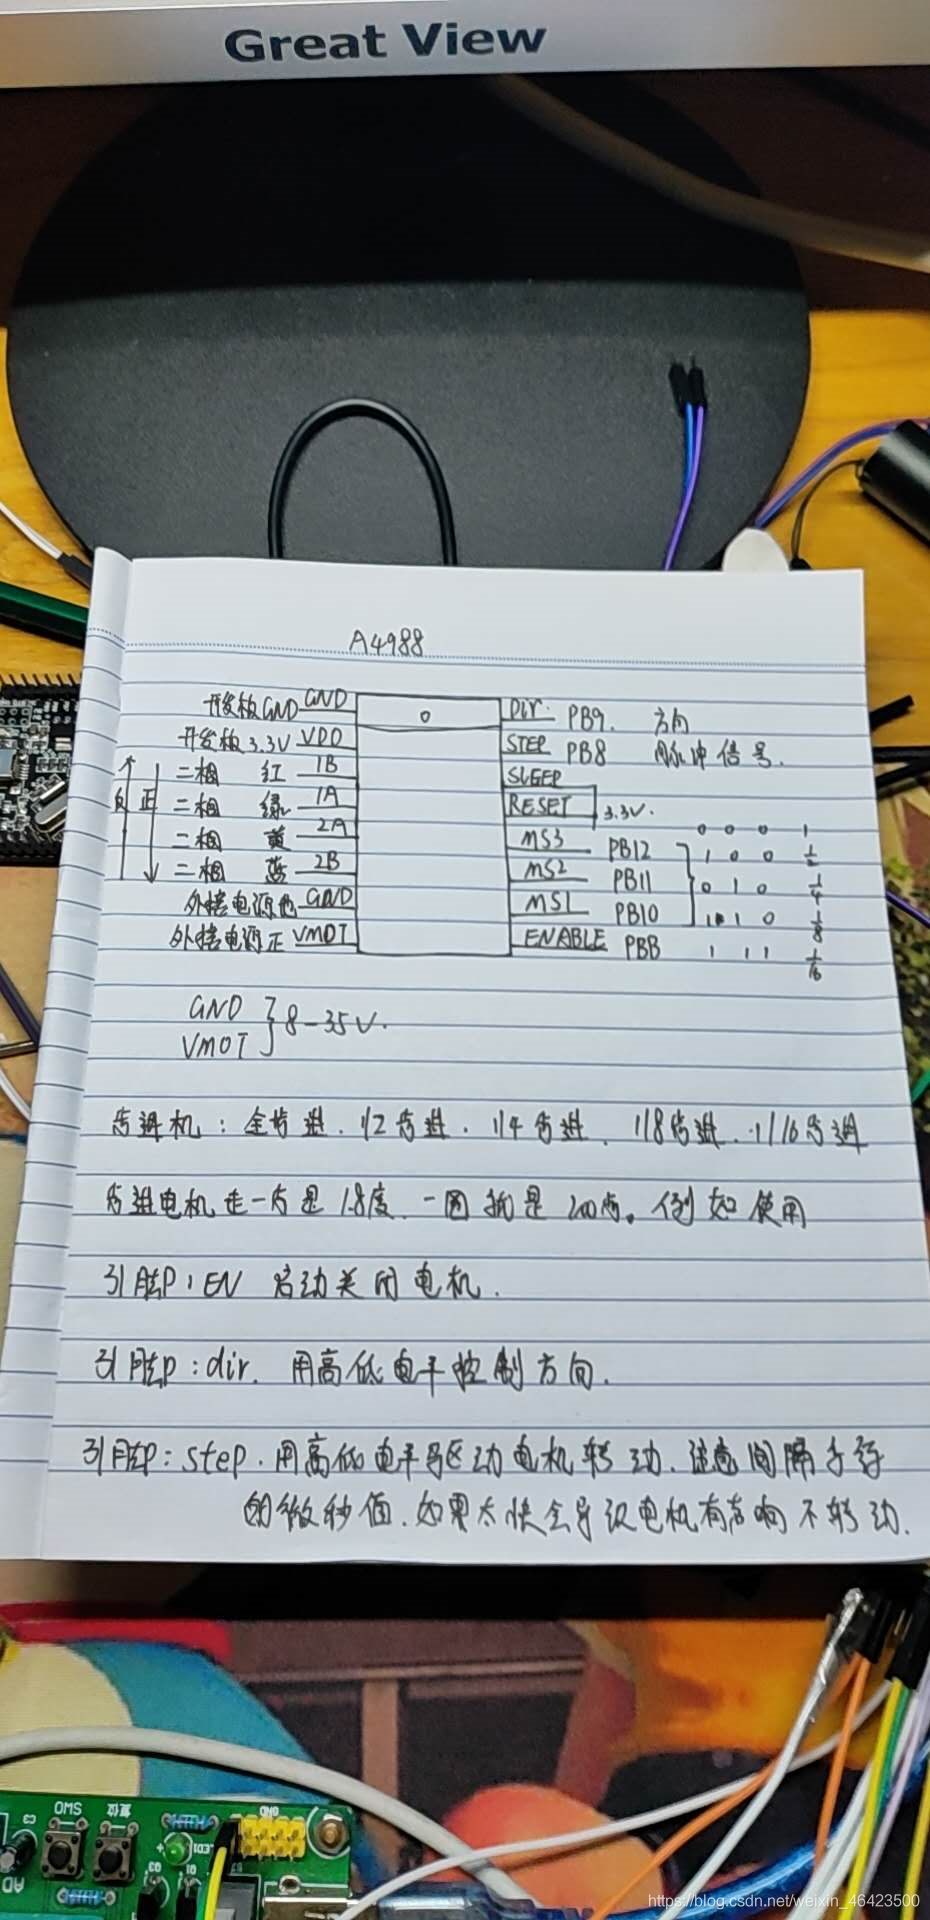 Great View
A4988
开发板GND GND DIR. PB9. 方向
开发板3.3V VDD STEP PB8 脉冲信号.
二相 红 1B SLEEP
二相 绿 1A RESET 3.3V.
反 正
0 0 0 1
二相 黄 2A MS3 PB12 1 0 0 1/2
二相 蓝 2B MS2 PB11 0 1 0 1/4
外接电源地 GND MS1 PB10 1 1 0 1/8
外接电源正 VMOT ENABLE 1 1 1 1/16
GND
VMOT } 8-35V.
步进机: 全步进. 1/2步进. 1/4步进. 1/8步进. 1/16步进
步进电机走一步是1.8度. 一圈就是200步。例如使用
引脚P: EN 启动关闭电机.
引脚P: dir. 用高低电平控制方向.
引脚P: step. 用高低电平驱动电机转动. 注意间隔
的微秒值. 如果太快会导致电机有声响不转动.
GND
SW0 复位
C3
LED1
Q3 Q1
AD
https://blog.csdn.net/weixin_46423500